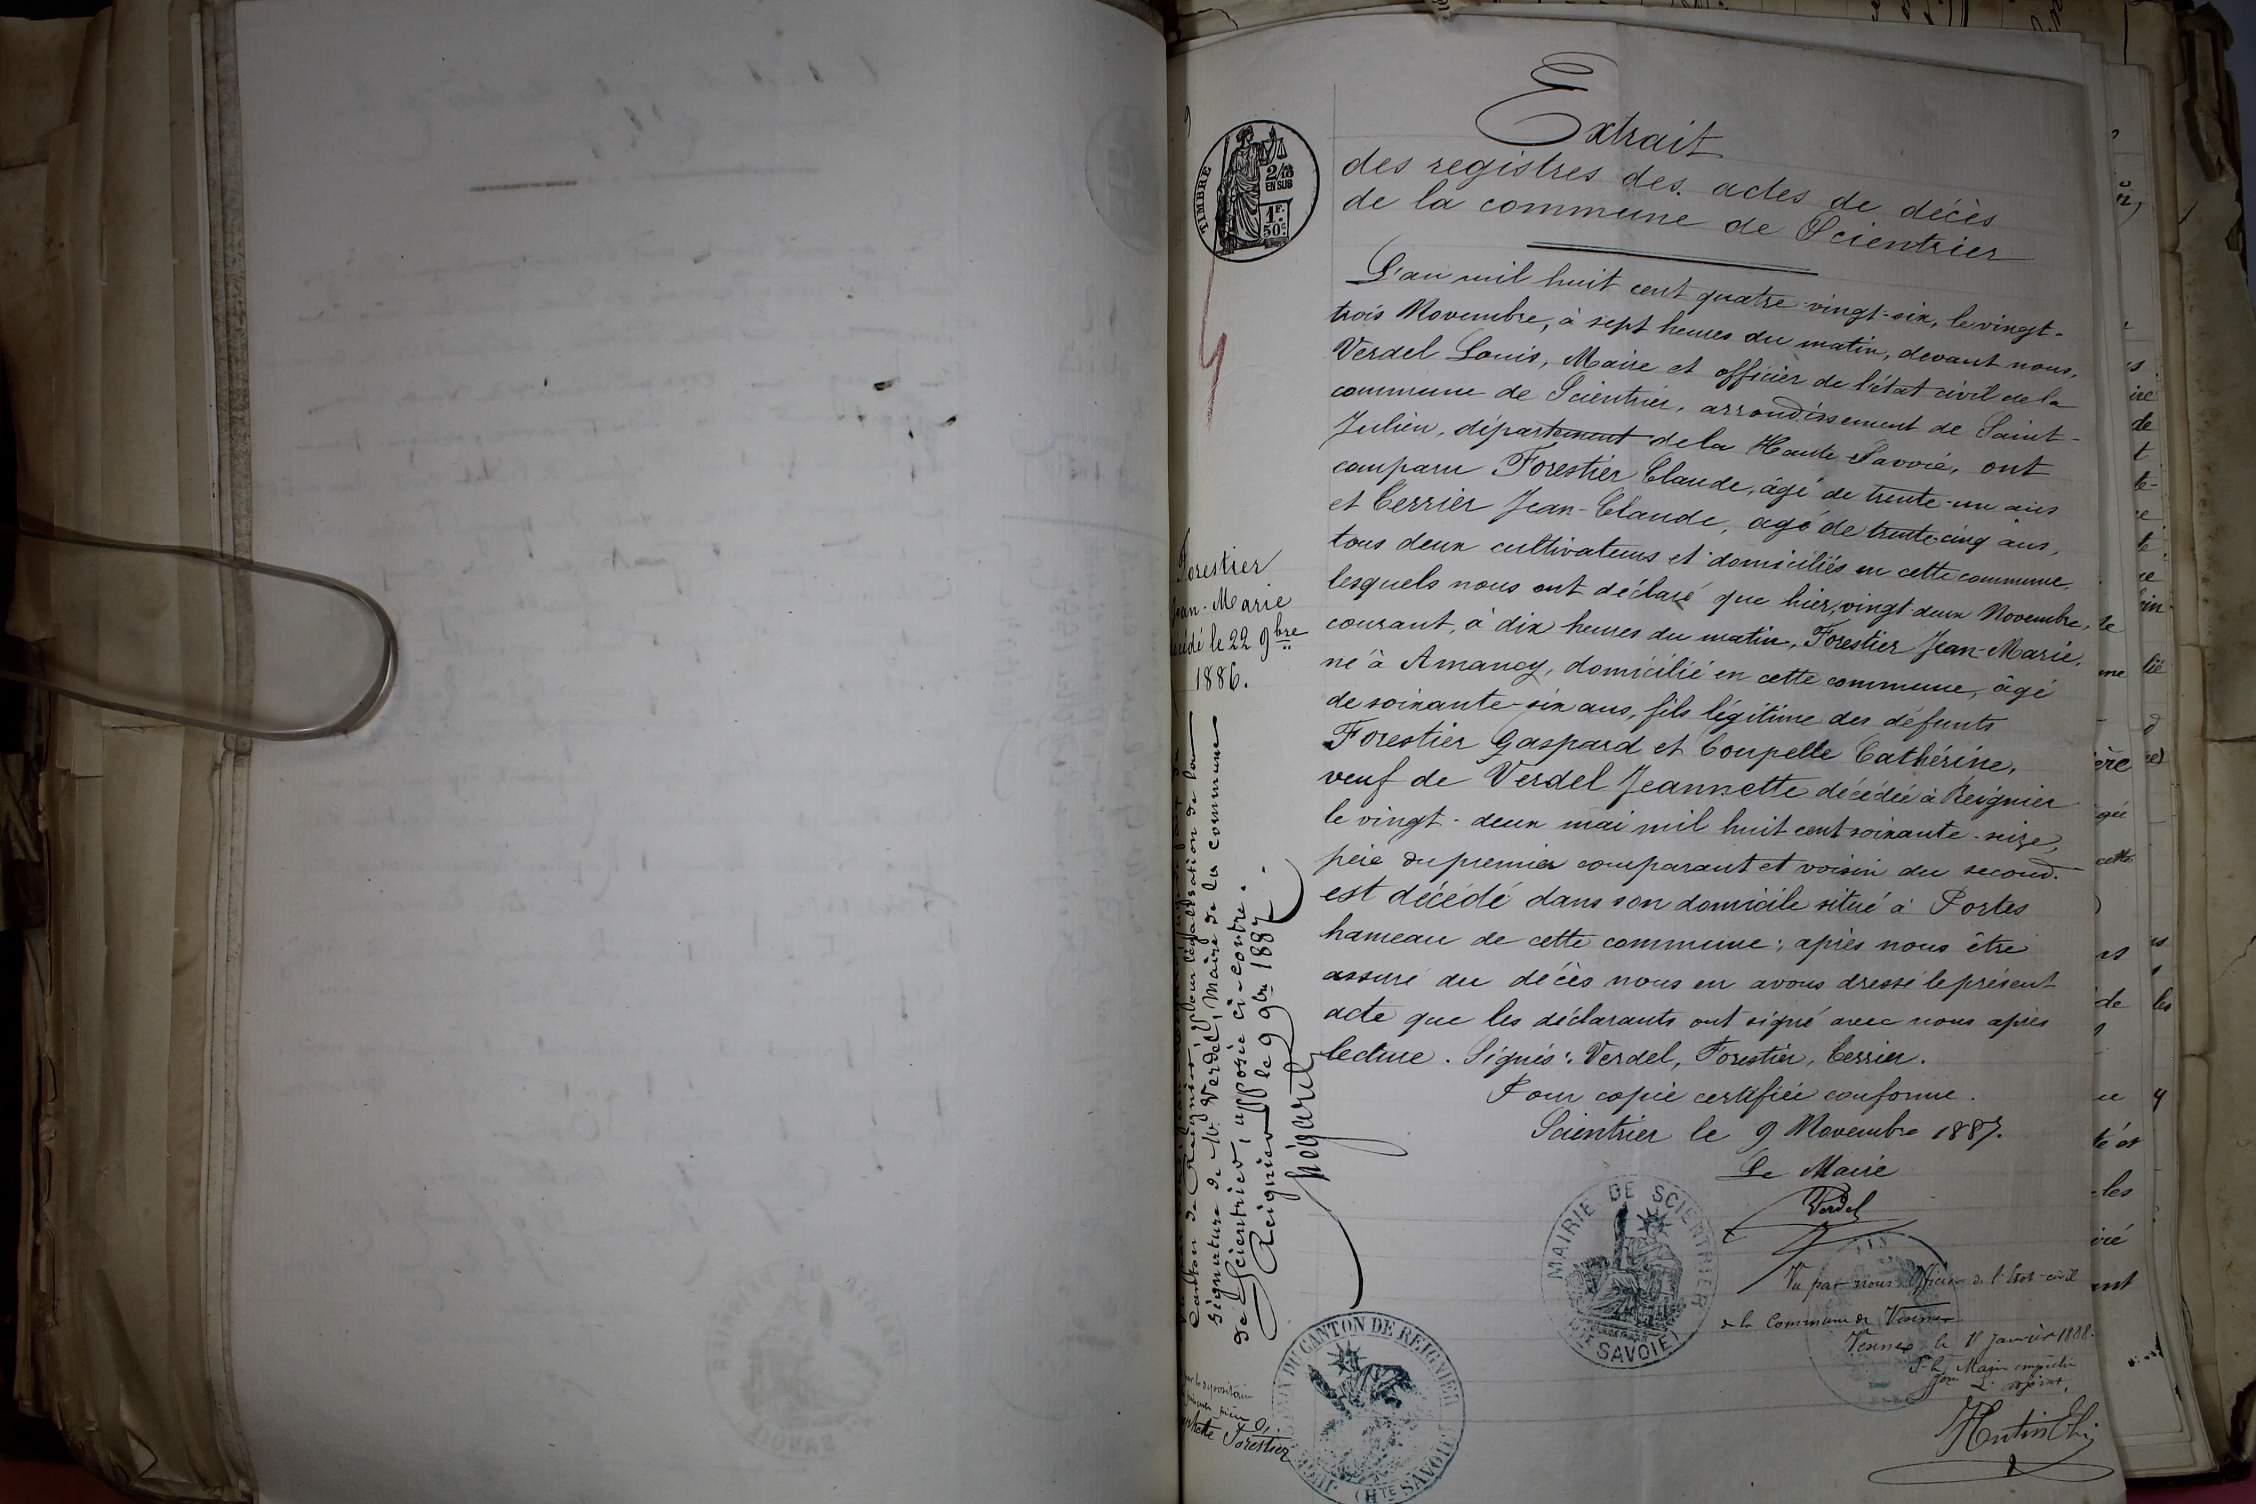 Extrait
des registres des actes de décès
de la commune de Scientrier
L'an mil huit cent quatre-vingt-six, le vingt-
trois Novembre, à sept heures du matin, devant nous,
Verdel Louis, Maire et officier de l'état civil de la
commune de Scientrier, arrondissement de Saint-
Julien, département de la Haute-Savoie, ont
comparu Forestier Claude, âgé de trente-un ans
et Cerrier Jean-Claude, âgé de trente-cinq ans,
tous deux cultivateurs et domiciliés en cette commune,
lesquels nous ont déclaré que hier, vingt-deux Novembre,
courant, à dix heures du matin, Forestier Jean-Marie,
né à Amancy, domicilié en cette commune, âgé
de soixante-six ans, fils légitime des défunts
Forestier Gaspard et Coupelle Cathérine,
veuf de Verdel Jeannette décédée à Reignier
le vingt-deux mai mil huit cent soixante-seize,
père du premier comparant et voisin du second.
est décédé dans son domicile situé à Portes
hameau de cette commune; après nous être
assuré du décès nous en avons dressé le présent
acte que les déclarants ont signé avec nous après
lecture. Signés: Verdel, Forestier, Cerrier.
Pour copie certifiée conforme.
Scientrier le 9 Novembre 1887.
Le Maire
Verdel
Vu par nous Officier de l'Etat-civil
de la Commune de
le Janvier 1888.
TIMBRE
2/10
EN SUS
1F.
50c.
Forestier
Jean-Marie
décédé le 22 9bre
1886.
Canton de Reignier, pour légalisation de la
signature de Mr. Verdel, Maire de la commune
de Scientrier, apposée ci-contre.
Reignier le 9 9bre 1887.
Forestier
MAIRIE DE SCIENTRIER
(HTE SAVOIE)
DU CANTON DE REIGNIER
(HTE SAVOIE)